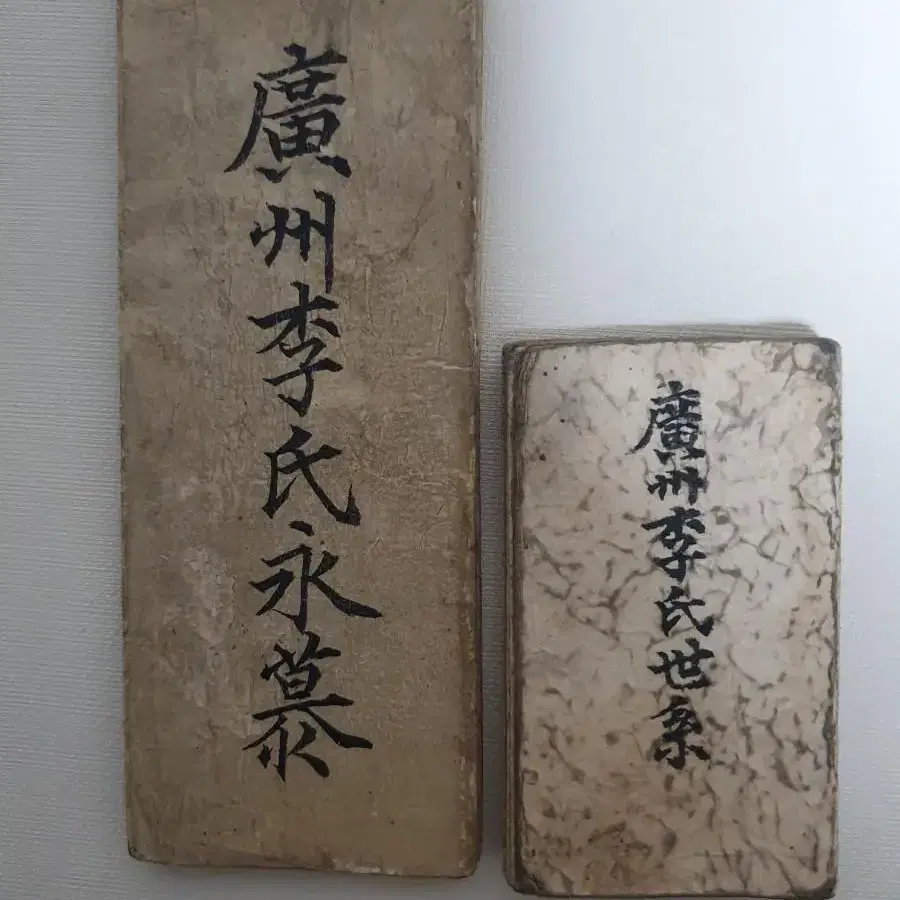 廣州李氏永慕
廣州李氏世系